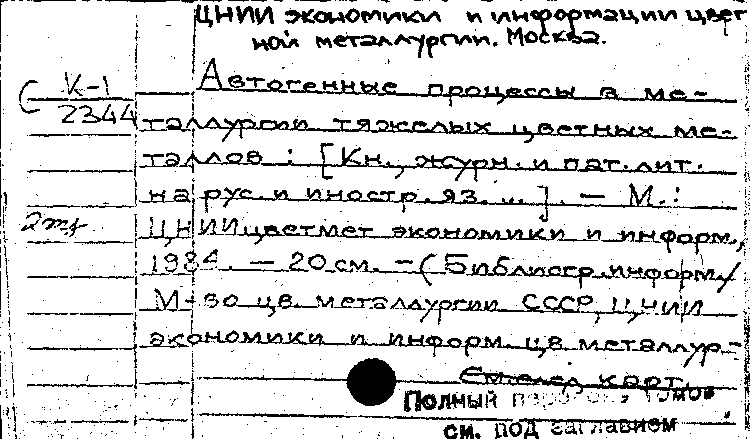 ЦНИИ экономики и информации цвет
ной металлургии. Москва.
К-1
2344
Автогенные процессы в ме-
таллургии тяжелых цветных ме-
таллов : [Кн., журн. и пат. лит.
на рус. и иностр. яз. ...]. — М. :
ЦНИИцветмет экономики и информ.,
1984. — 20 см. — (Библиогр. информ./
М-во цв. металлургии СССР, ЦНИИ
экономики и информ. цв. металлур-
См. след. карт.
Полный томов
см. под заглавием